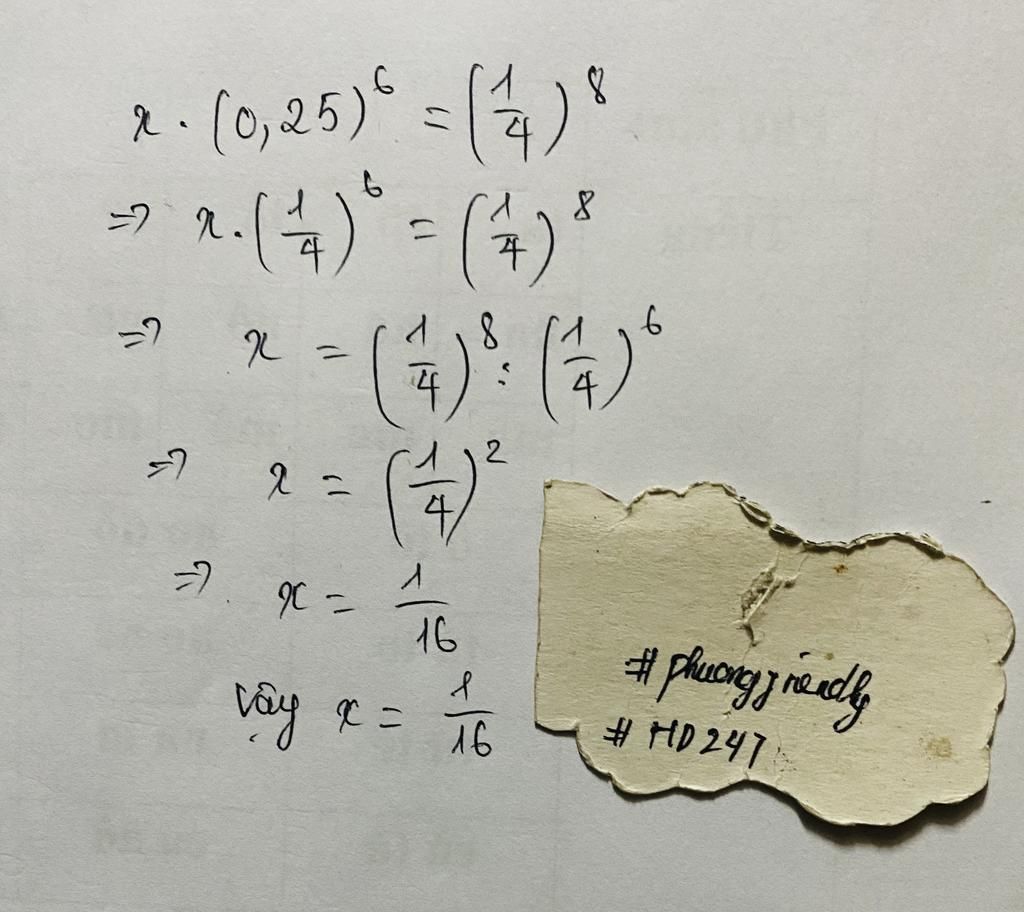 x . (0,25)^6 = (1/4)^8
=> x . (1/4)^6 = (1/4)^8
=> x = (1/4)^8 : (1/4)^6
=> x = (1/4)^2
=> x = 1/16
Vậy x = 1/16
# phuongfriendly
# HD247